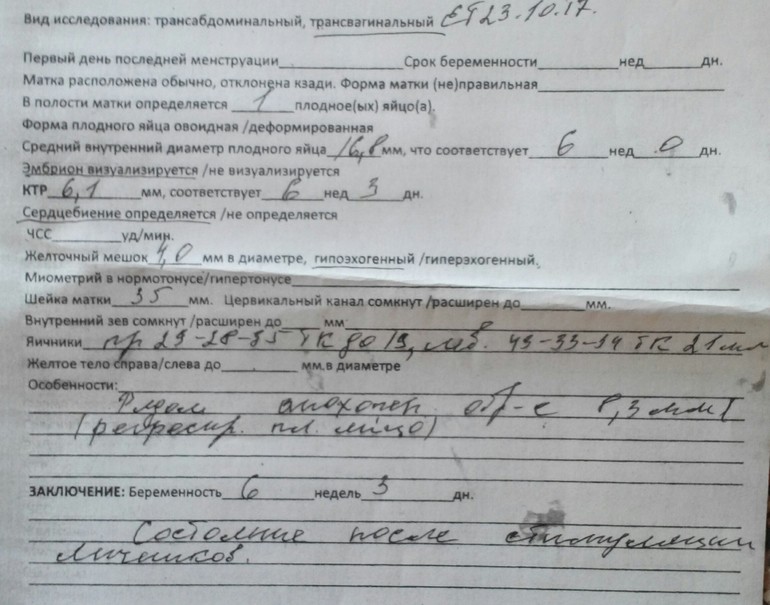 Вид исследования: трансабдоминальный, трансвагинальный ЕТ 23.10.17.
Первый день последней менструации Срок беременности нед дн.
Матка расположена обычно, отклонена кзади. Форма матки (не)правильная
В полости матки определяется 1 плодное(ых) яйцо(а).
Форма плодного яйца овоидная /деформированная
Средний внутренний диаметр плодного яйца 16,8 мм, что соответствует 6 нед 0 дн.
Эмбрион визуализируется /не визуализируется
КТР 6,1 мм, соответствует 6 нед 3 дн.
Сердцебиение определяется /не определяется
ЧСС уд/мин.
Желточный мешок 4,0 мм в диаметре, гипоэхогенный /гиперэхогенный.
Миометрий в нормотонусе/гипертонусе
Шейка матки 35 мм. Цервикальный канал сомкнут /расширен до мм.
Внутренний зев сомкнут /расширен до мм
Яичники пр 29-28-35 ТК до 19, лев. 49-33-34 ТК 21 мм
Желтое тело справа/слева до мм.в диаметре
Особенности:
Рядом анэхоген. обр-е 8,3 мм
(регрессир. пл. яйцо)
ЗАКЛЮЧЕНИЕ: Беременность 6 недель 3 дн.
Состояние после стимуляции
яичников.